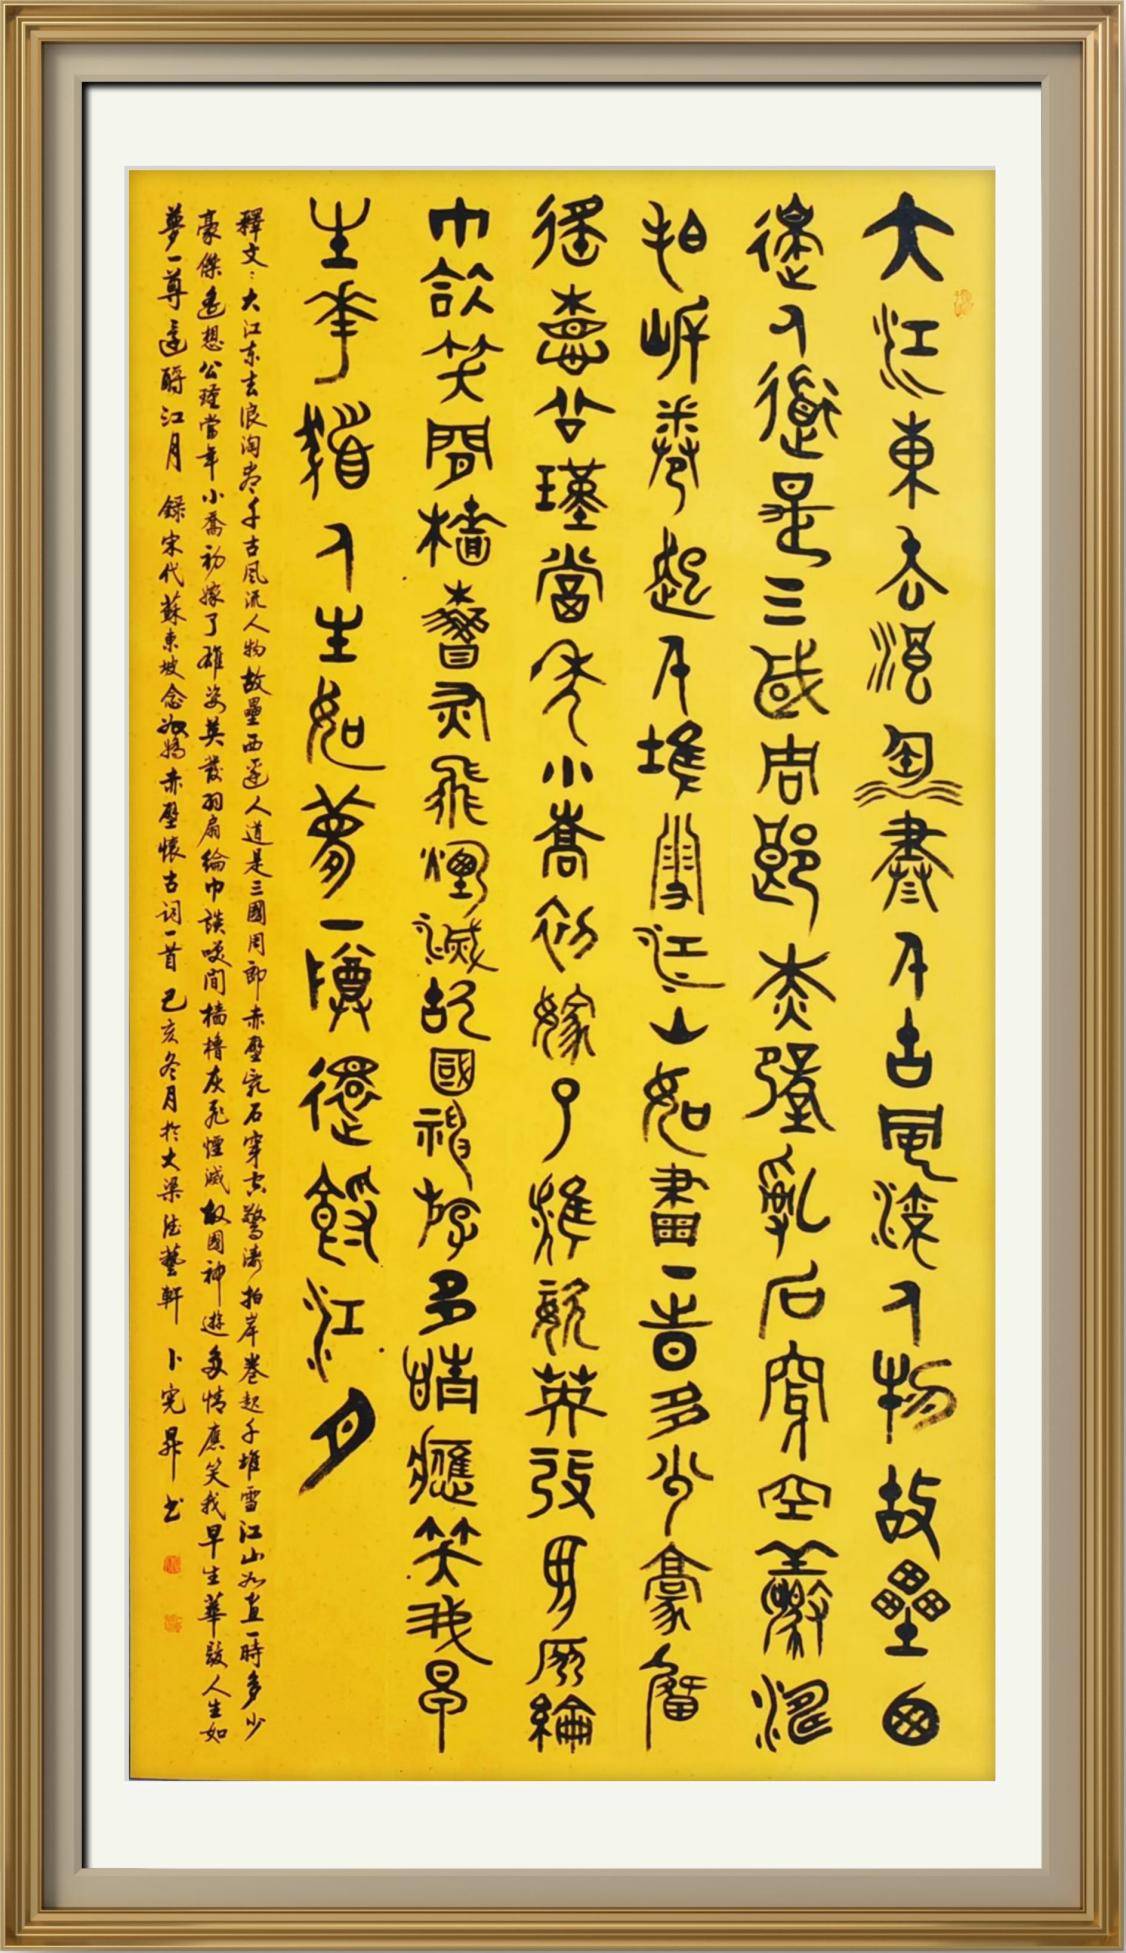 大江東去浪淘盡千古風流人物故壘西
邊人道是三國周郎赤壁亂石穿空驚濤
拍岸卷起千堆雪江山如畫一時多少豪傑
遙想公瑾當年小喬初嫁了雄姿英發羽扇綸
巾談笑間檣櫓灰飛煙滅故國神游多情應笑我早
生華髮人生如夢一樽還酹江月
釋文：大江东去浪淘尽千古風流人物故壘西邊人道是三國周郎赤壁乱石穿空驚濤拍岸卷起千堆雪江山如畫一時多少
豪傑遙想公瑾當年小喬初嫁了雄姿英發羽扇綸巾談笑間檣櫓灰飛煙滅故國神遊多情應笑我早生華髮人生如
夢一尊還酹江月 録宋代蘇東坡念奴嬌赤壁懷古词一首 己亥冬月於大梁藝軒 卜宪昇书